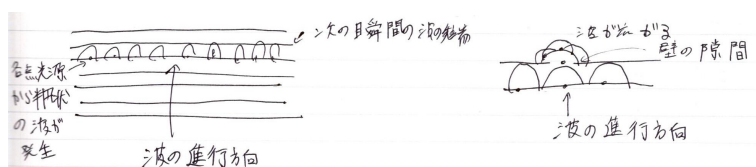 次の瞬間の波の先端
各点光源
から半円状
の波が
発生
波の進行方向
波が広がる
壁の隙間
波の進行方向